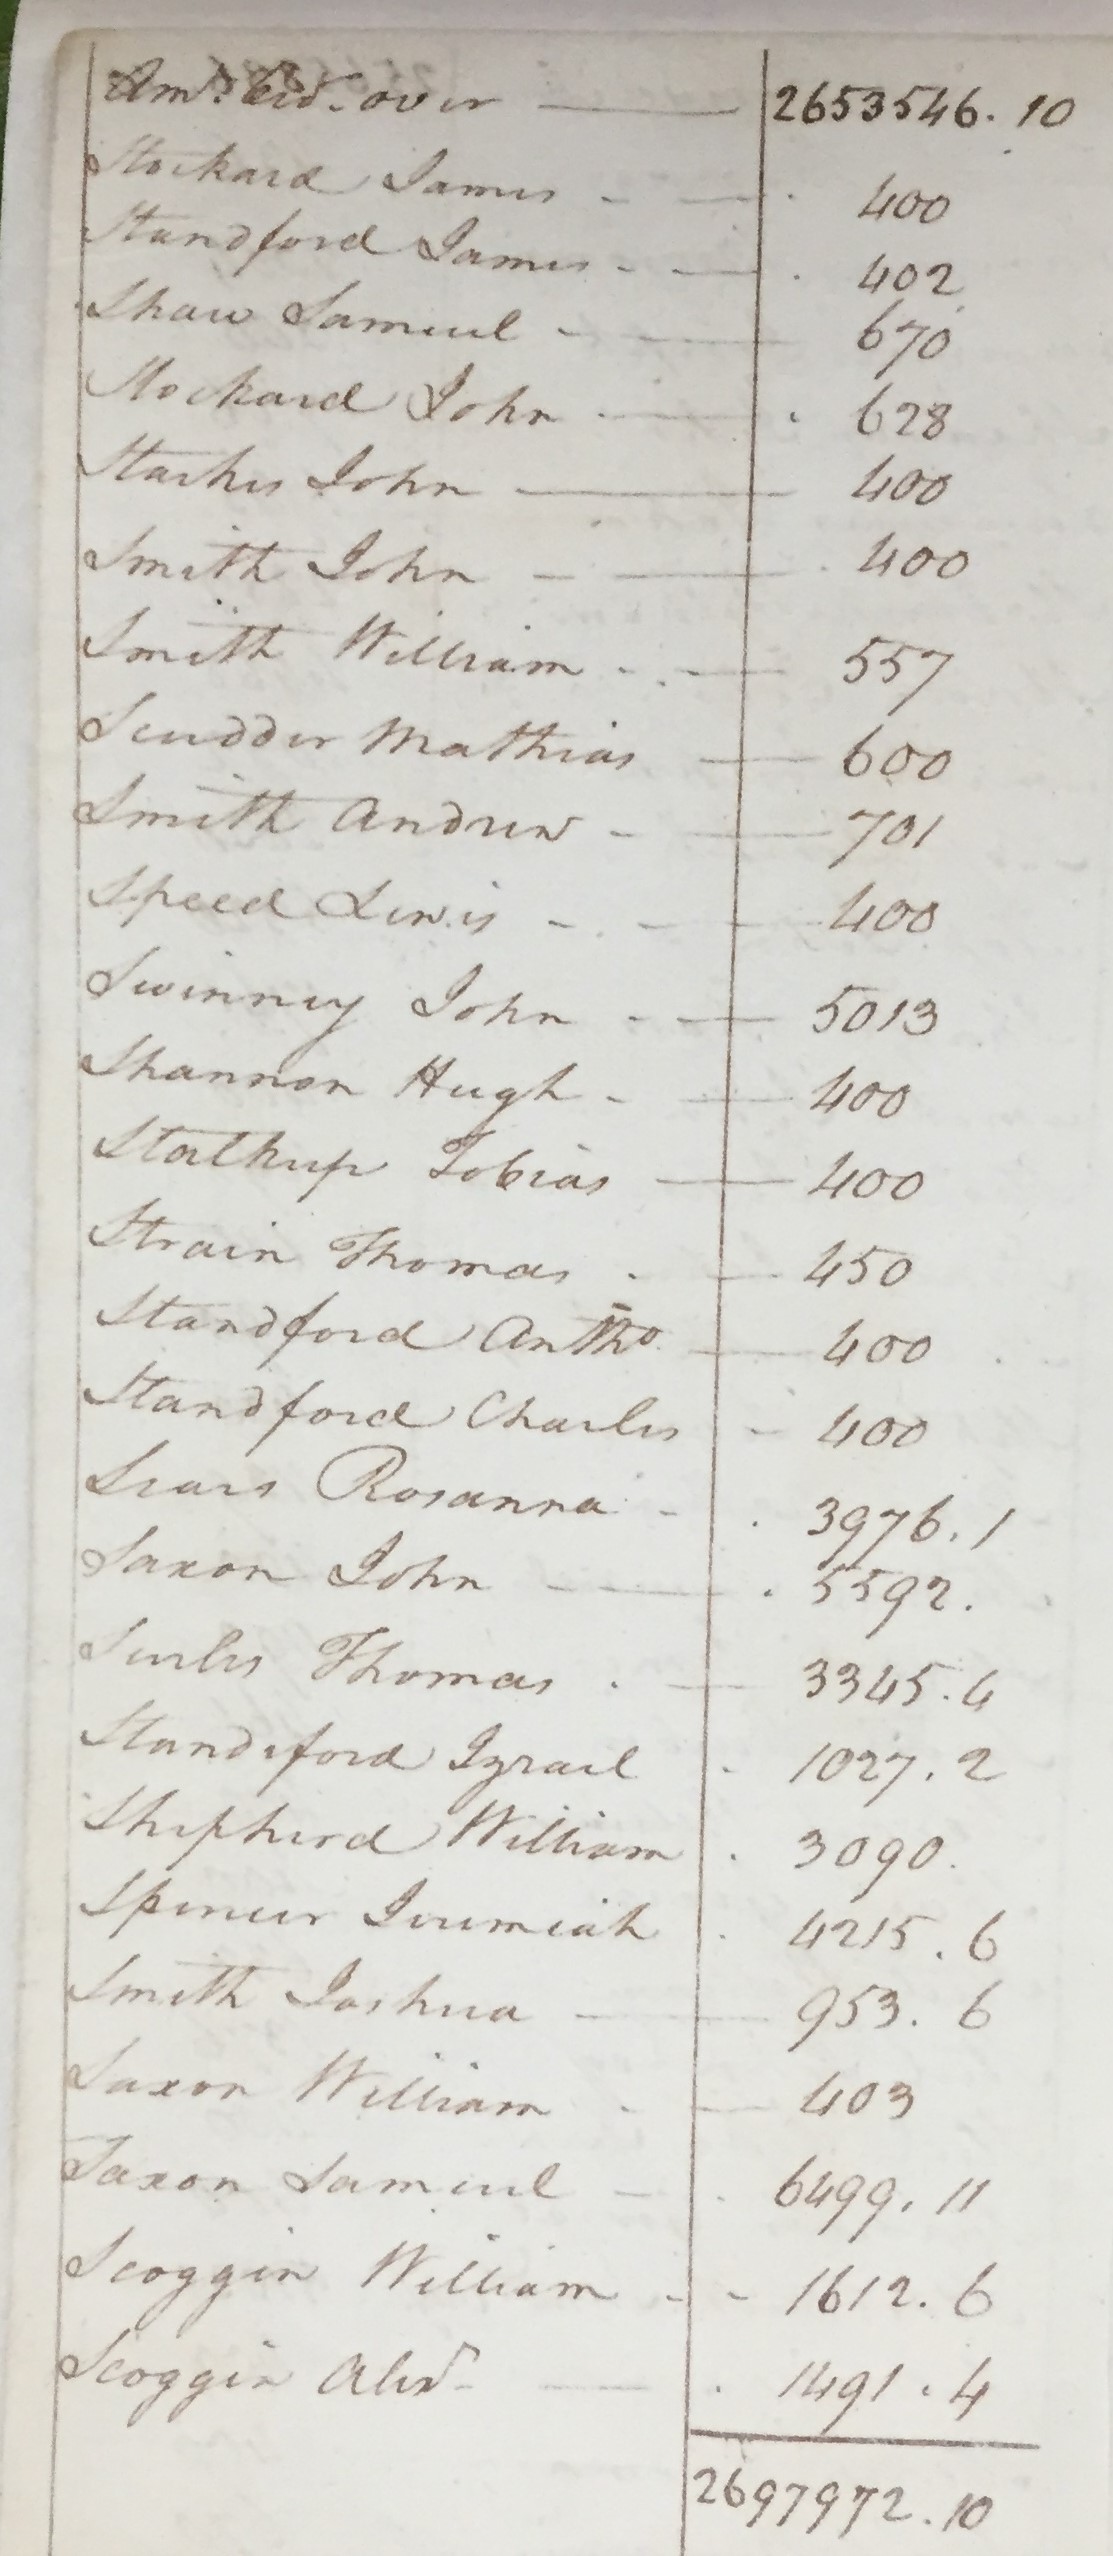 Amt. brd. over 2653546. 10
Stockard James 400
Standford James 402
Shaw Samuel 670
Stockard John 628
Starkes John 400
Smith John 400
Smith William 557
Scudder Mathias 600
Smith Andrew 701
Speed Lewis 400
Swinney John 5013
Shannon Hugh 400
Stalkup Tobias 400
Strain Thomas 450
Standford Antho. 400
Standford Charles 400
Sears Rosanna 3976. 1
Saxon John 5592.
Thomas 3345. 4
Standeford Izrael 1027. 2
Shepherd William 3090.
Spencer Jeremiah 4215. 6
Smith Joshua 953. 6
Saxon William 403
Saxon Samuel 6499. 11
Scoggin William 1612. 6
Scoggin Alexr. 1491. 4
2697972. 10